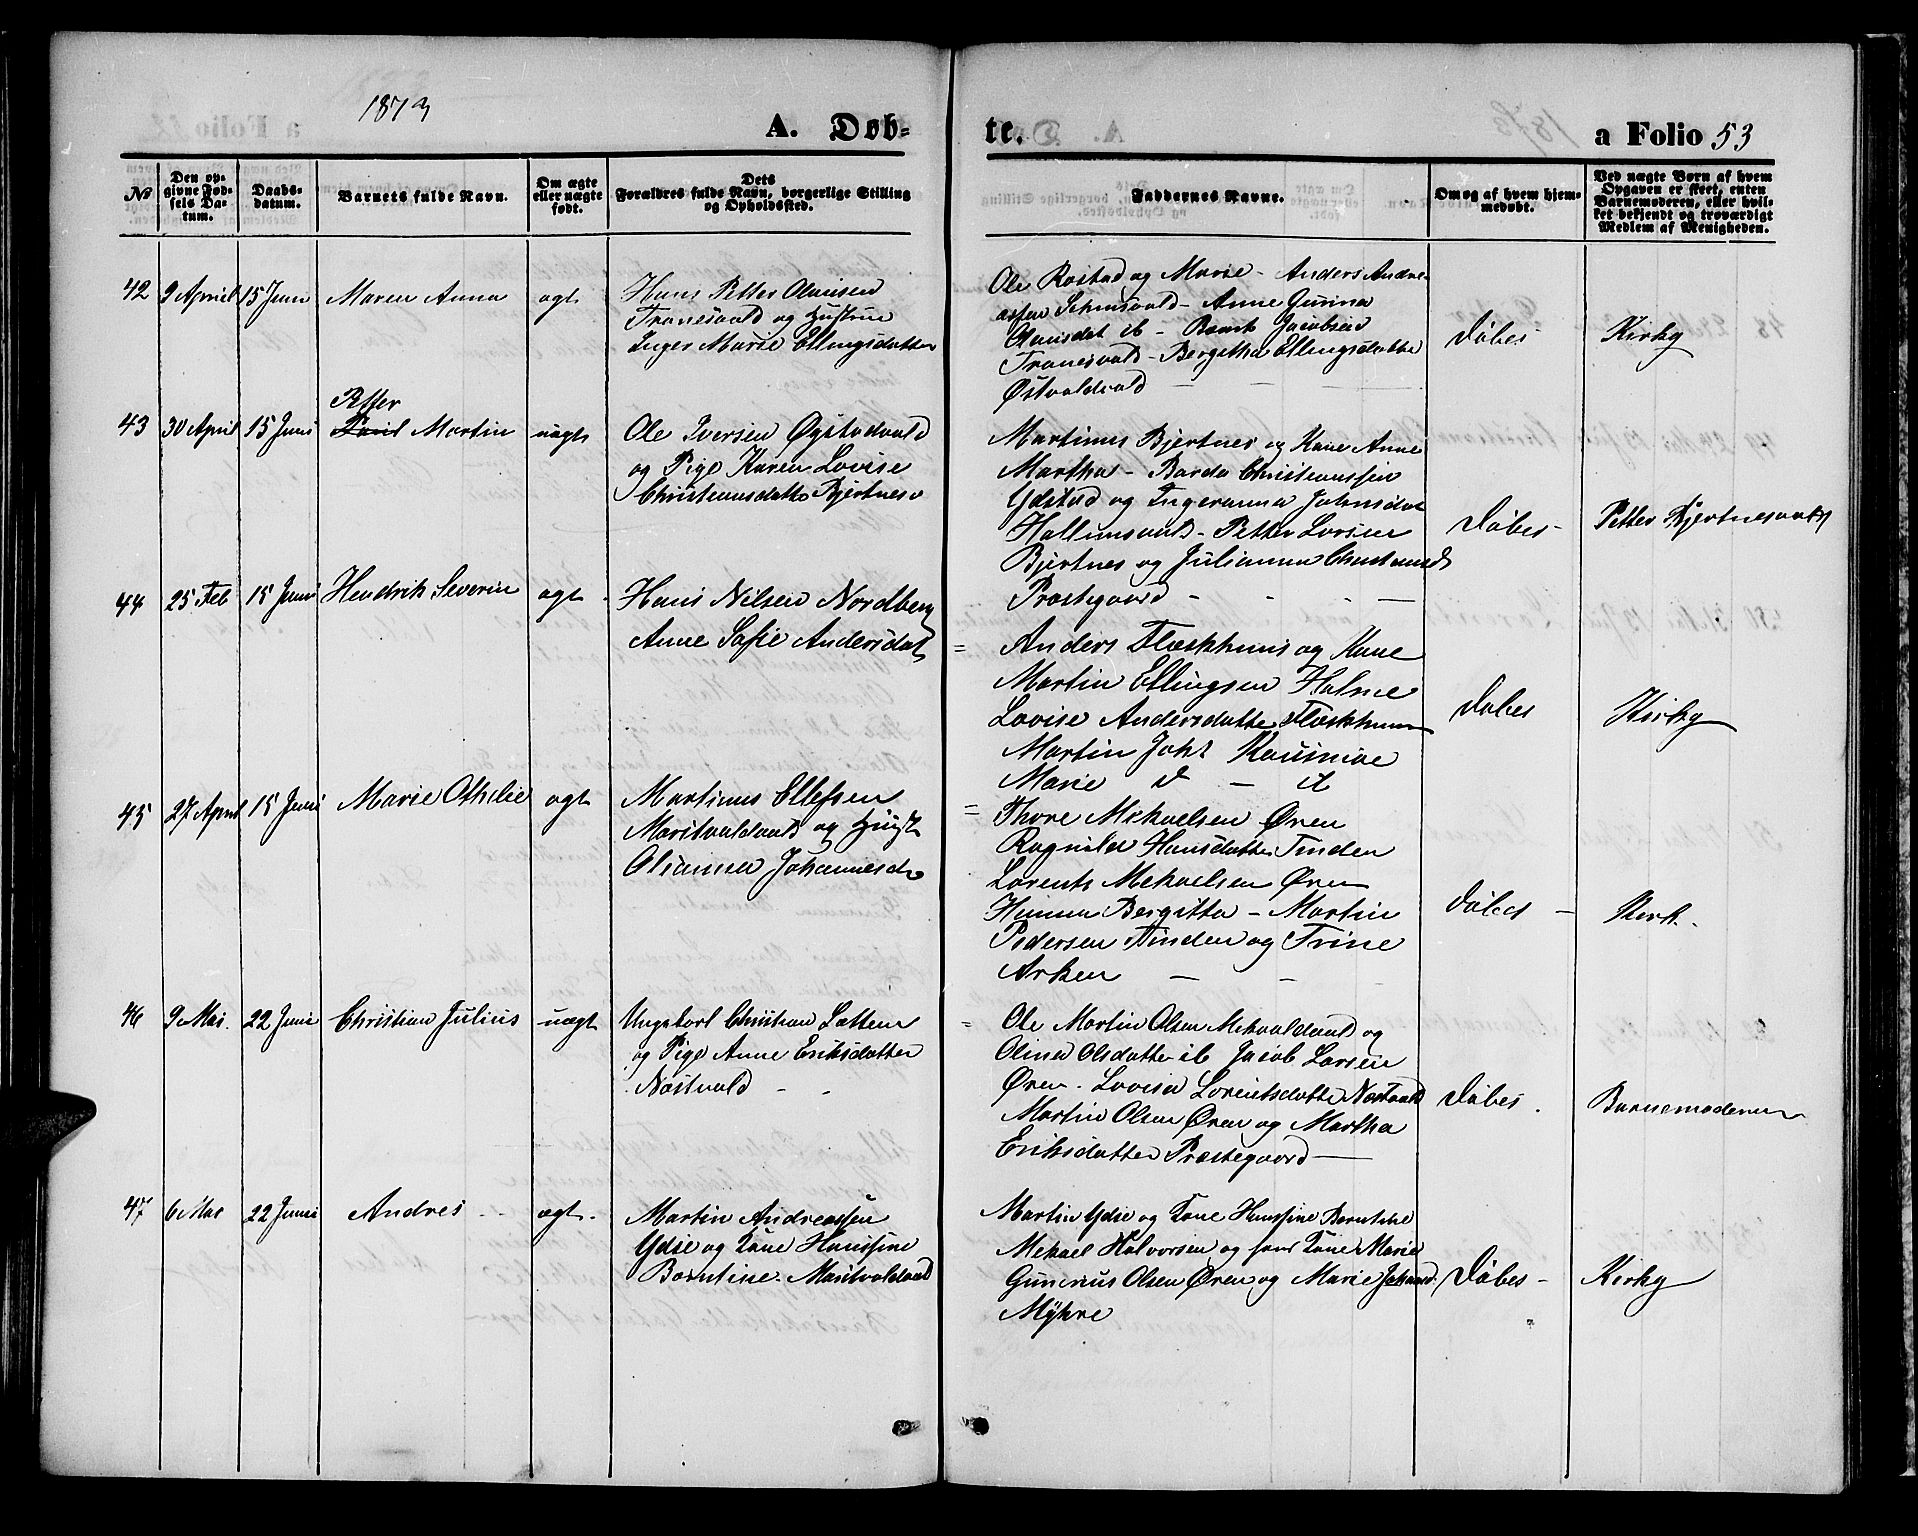 1873
A. Døb-
te.
a Folio 53
No
Den op-
givne Fød-
sels Da-
tum.
Daabs-
datum.
Barnets fulde Navn.
Om ægte
eller uægte
født.
Dets
Forældres fulde Navn, borgerlige Stilling
og Opholdssted.
Faddernes Navne.
Om og af hvem hjem-
medøbt.
Ved uægte Børn af hvem
Opgaven er skeet, enten
Barnemoderen, eller hvil-
ket bekjendt og troværdigt
Medlem af Menigheden.
42 9 April 15 Juni Maren Anna ægt
Hans Petter Olausen
Tranesvald og Hustrue
Inger Marie Ellingsdatter
Ole Rostad og Marie - Anders Andre-
assen - Anne Gurina
Olausdat ib - Bernt Jacobsen
Tranesvald - Bergitha Ellingsdatte
Østvoldvald
Døbes
Kirky
43 30 April 15 Juni
Petter
Martin uægt
Ole Iversen Øystadvald
og Pige Karen Lovise
Christiansdatte Bjertnesv
Martinus Bjertnes og Kone Anne
Martha - Bardo Christianssen
Ydstad og Ingeranna Johnsdat
Hallemsvald - Petter Larsen
Bjertnes og Julianna
Præstegaard
Døbes -
Petter Bjertnesvald
44 25 Feb 15 Juni Hendrik Severin ægt
Hans Nilsen Nordberg
Anne Sofie Andersdat
= Anders Flækkhuus og Kone
Martin Ellingsen Holme
Lovise Andersdatte Flækkhuus
Martin Joh
Marie d - d
Døbes
Kirky
45 27 April 15 Juni Marie Othelie ægt
Martinus Ellefsen
Maritvoldvald og Hust
Olianna Johannesd
= Thore Mekaelsen Øren
Ragnild Hansdatte Tinden
Lorents Mekaelsen Øren
Hanna Bergitta - Martin
Pedersen Tinden og Trine
Arken
Døbes -
Kirk.
46 9 Mai. 22 Juni Christian Julius uægt
Ungkarl Christian Lætten
og Pige Anne Eriksdatter
Næstvald -
= Ole Martin Olsen Mekvoldvald og
Olina Olsdatte ib Jacob Larsen
Øren. Lovisa Lorentsdatte Næstvald
Martin Olsen Øren og Martha
Eriksdatter Præstegaard
Døbes.
Barnemoderen
47 6 Mai 22 Juni Andres ægt.
Martin Andreassen
Ydse og Kone Hanssine
Berntine. Maritvoldvald
Martin Ydse og Kone Hanssine Berntine
Mekael Halvorsen og hans Kone Marie
Gunerius Olsen Øren og Marie Johansd.
Myhre
Døbes -
Kirky